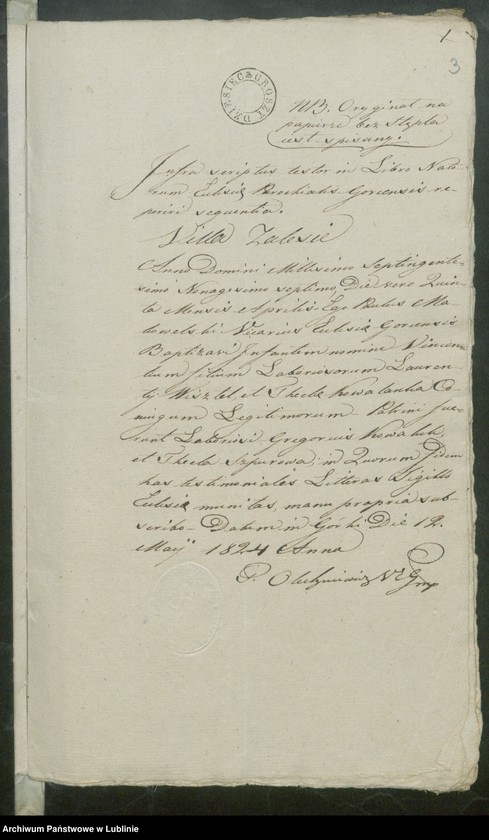 1
3
DZIESIĘĆ GROSZY
NB. Oryginał na
papierze bez Stępla
iest spisany.
Infra scriptus testor in Libro Nato-
rum Eclisiæ Parochialis Goreensis re-
periri sequentia.
Villa Zalesie
Anno Domini Millesimo Septingente-
simo Nonagesimo septimo, Die vero Quin-
ta Mensis Aprilis. Ego Paulus Ma-
Vicarius Eclisiæ Goreensis
Baptizavi Infantem nomine Vincen-
tium filium Laboriosorum Lauren-
ty Wiszlel, et Theclæ Kowalonka Co-
niugum Legitimorum - Patrini fue-
runt Laboriosi Gregorius Kowalik,
et Thecla Szpurowa; in Quorum Fidem
has testimoniales Litteras Sigillo
Eclisiæ munitas, manu propria sub-
scribo - Datum in Gorki Die 12.
Maij 1824 Anno
P.
Archiwum Państwowe w Lublinie